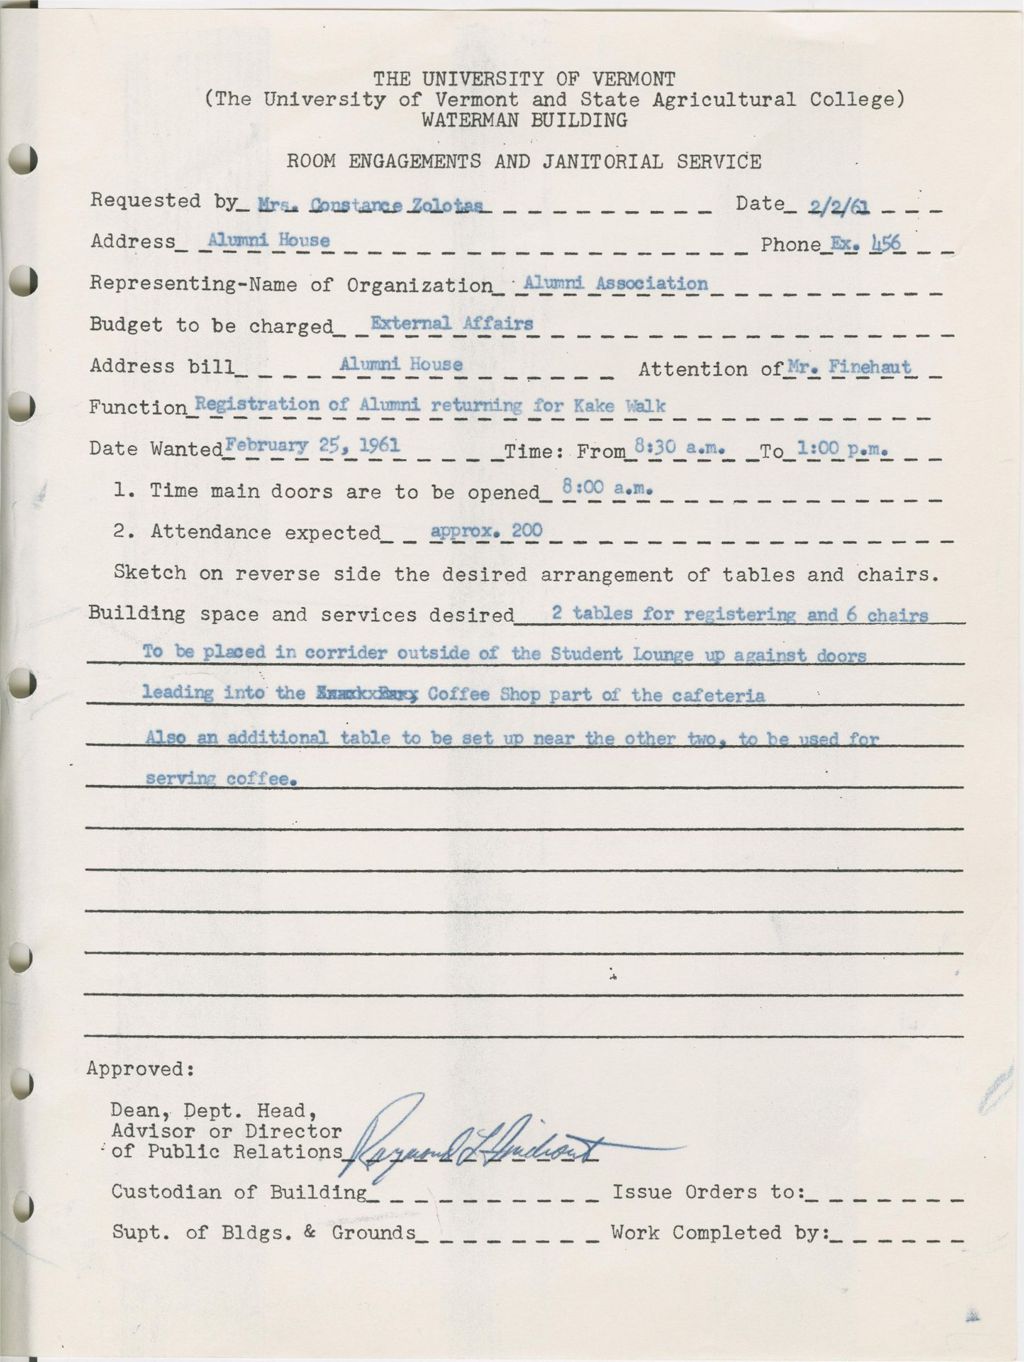 THE UNIVERSITY OF VERMONT
(The University of Vermont and State Agricultural College)
WATERMAN BUILDING
ROOM ENGAGEMENTS AND JANITORIAL SERVICE
Requested by Mrs. Constance Zolotas Date 2/2/61
Address Alumni House Phone Ex. 456
Representing-Name of Organization Alumni Association
Budget to be charged External Affairs
Address bill Alumni House Attention of Mr. Finehaut
Function Registration of Alumni returning for Kake Walk
Date Wanted February 25, 1961 Time: From 8:30 a.m. To 1:00 p.m.
1. Time main doors are to be opened 8:00 a.m.
2. Attendance expected approx. 200
Sketch on reverse side the desired arrangement of tables and chairs.
Building space and services desired 2 tables for registering and 6 chairs
To be placed in corrider outside of the Student Lounge up against doors
leading into the Coffee Shop part of the cafeteria
Also an additional table to be set up near the other two, to be used for
serving coffee.
Approved:
Dean, Dept. Head,
Advisor or Director
of Public Relations Raymond L
Custodian of Building Issue Orders to:
Supt. of Bldgs. & Grounds Work Completed by: